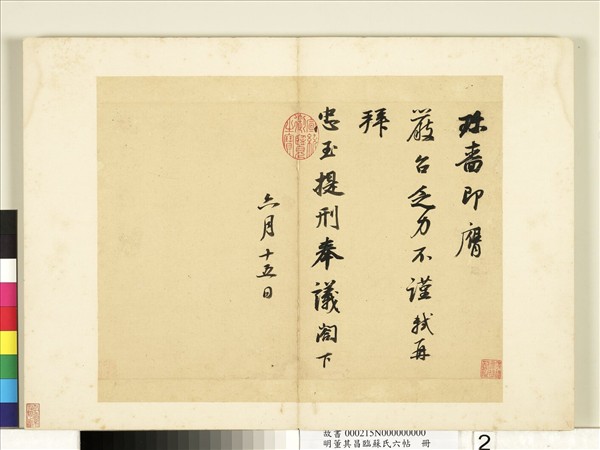 珎嗇即膺
嚴召乏力不謹軾再
拜
忠玉提刑奉議閤下
六月十五日
故書 000215N000000000
明董其昌臨蘇氏六帖 冊
2